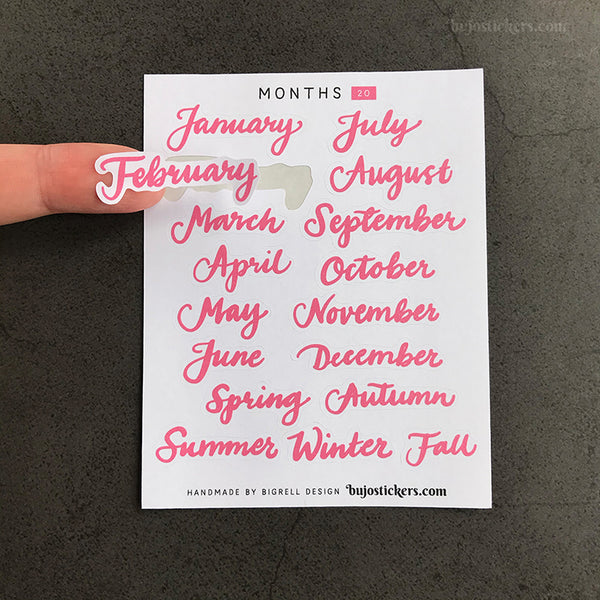 bujostickers.com
MONTHS 20
January July
February August
March September
April October
May November
June December
Spring Autumn
Summer Winter Fall
HANDMADE BY BIGRELL DESIGN bujostickers.com